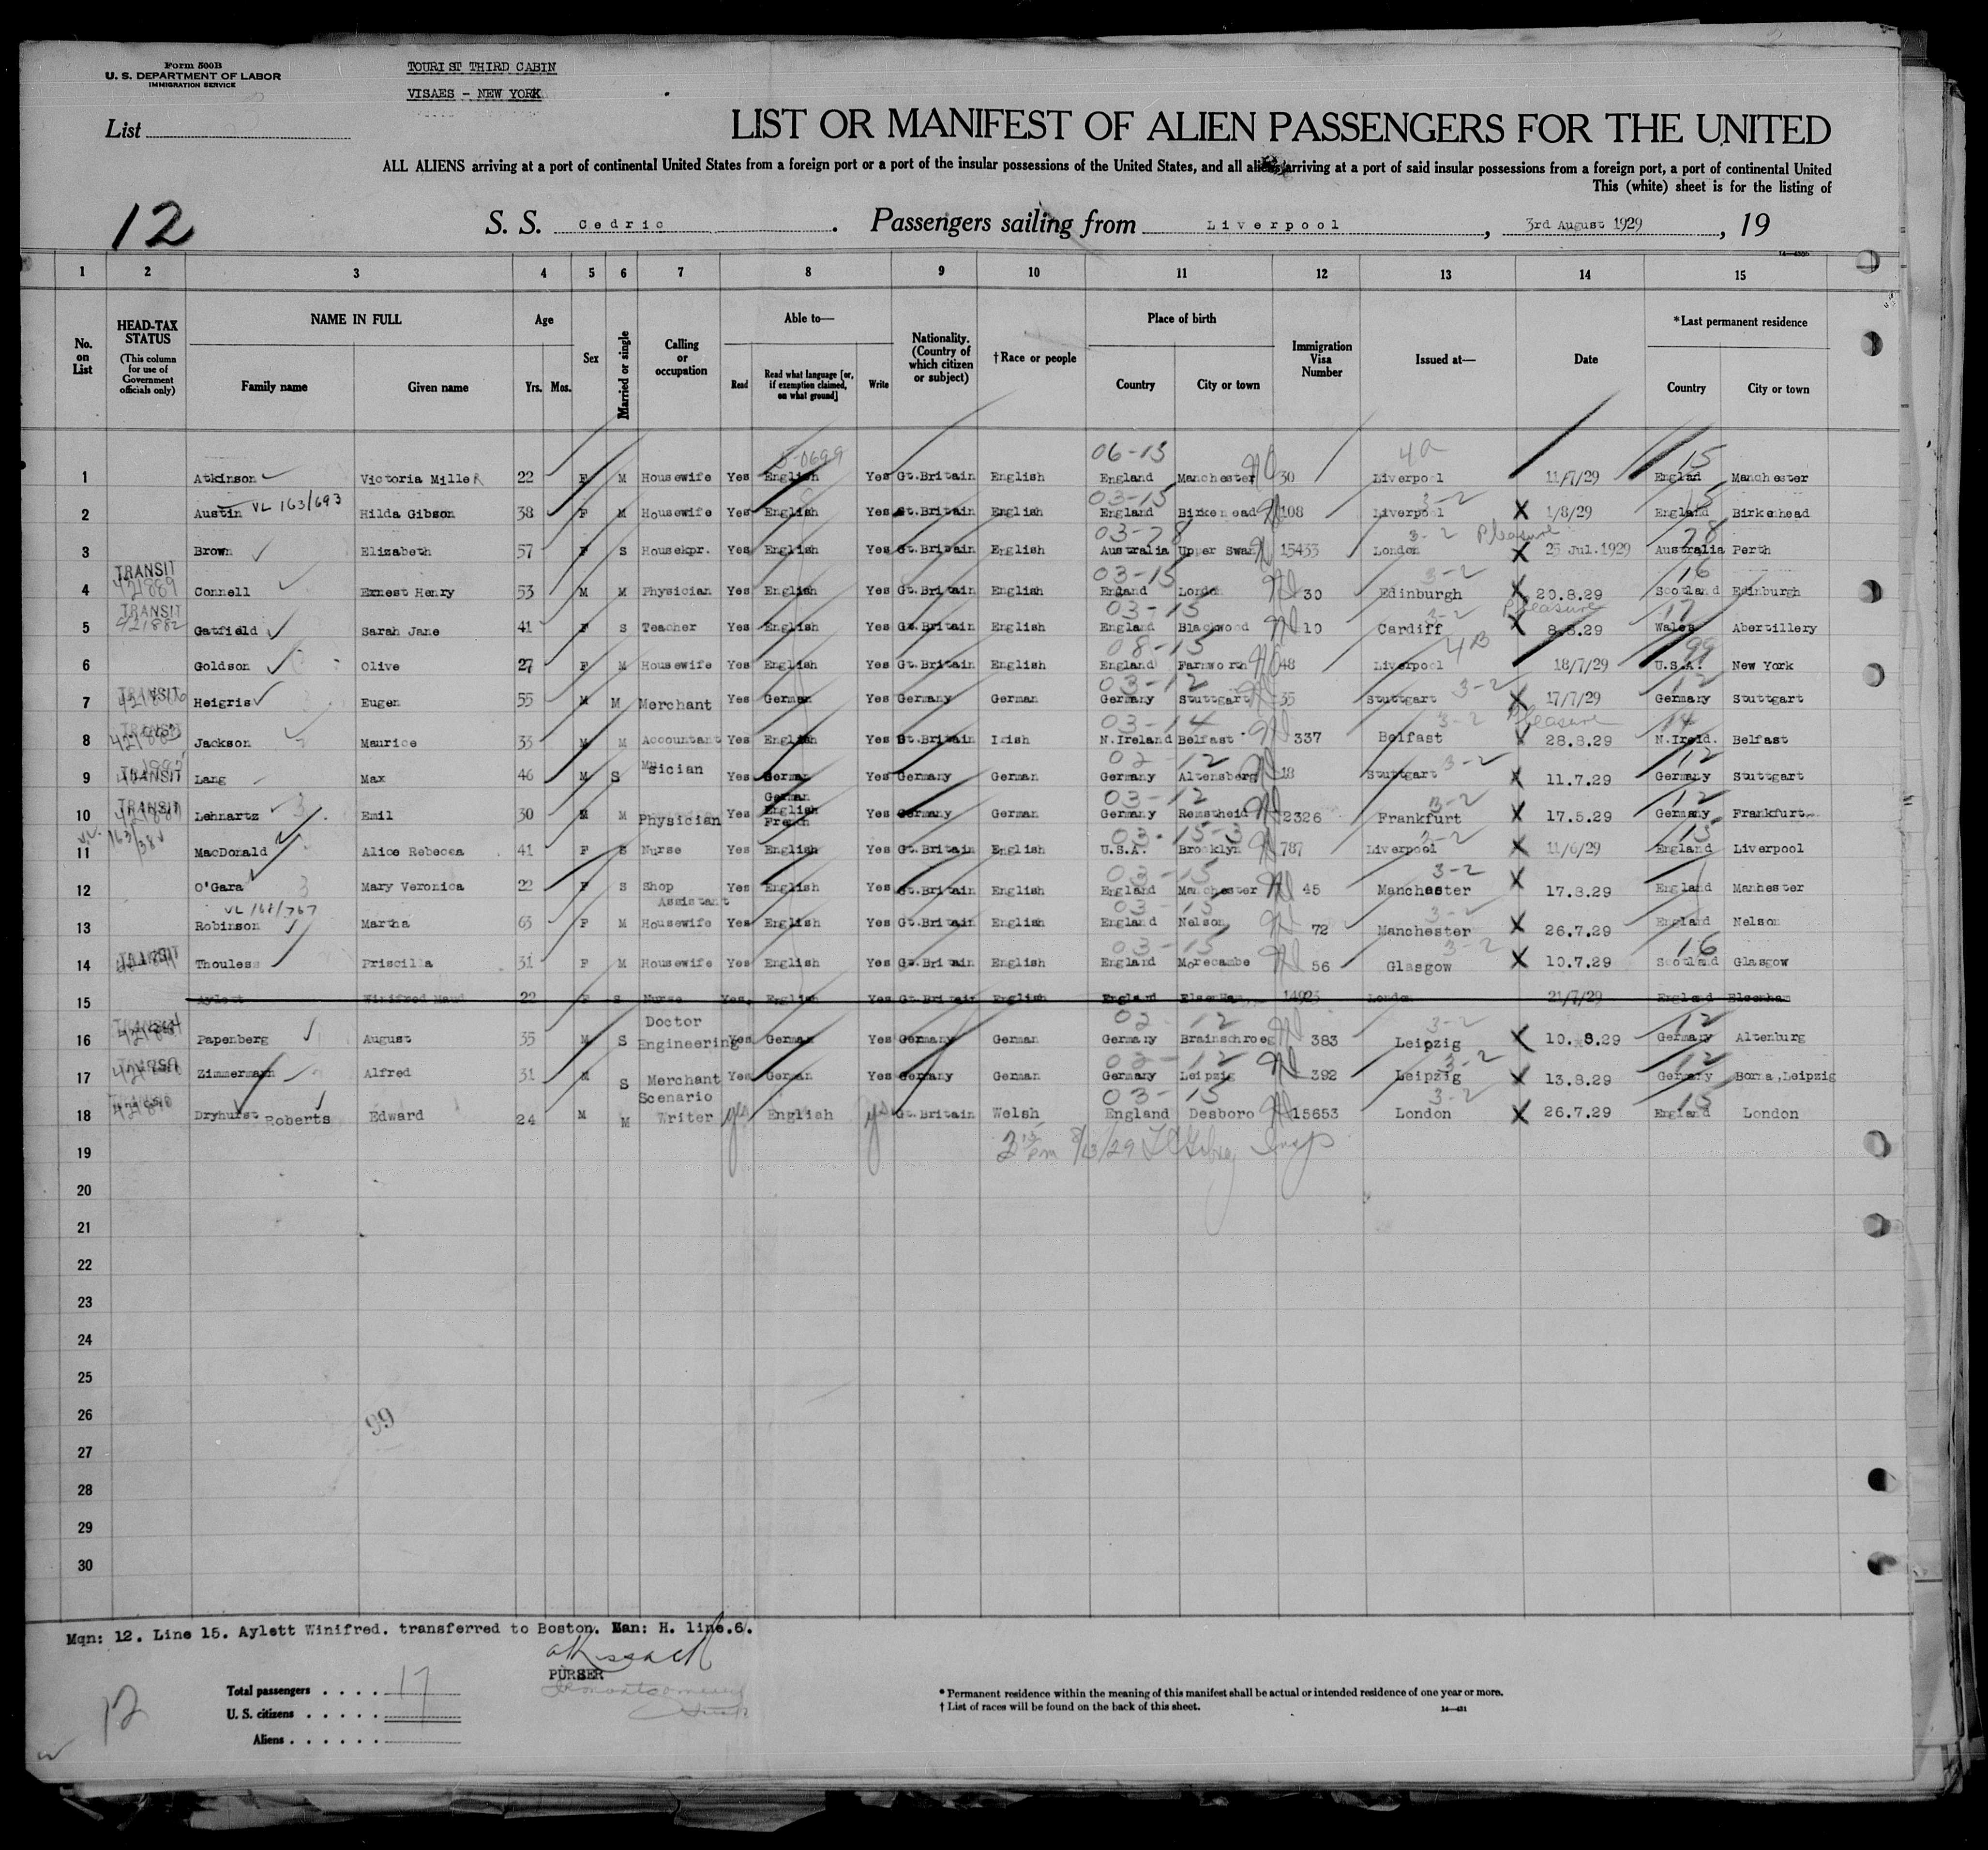 Form 500B
U. S. DEPARTMENT OF LABOR
IMMIGRATION SERVICE
TOURIST THIRD CABIN
VISAES - NEW YORK
List
LIST OR MANIFEST OF ALIEN PASSENGERS FOR THE UNITED
ALL ALIENS arriving at a port of continental United States from a foreign port or a port of the insular possessions of the United States, and all aliens arriving at a port of said insular possessions from a foreign port, a port of continental United
This (white) sheet is for the listing of
12
S. S. Cedric . Passengers sailing from Liverpool , 3rd August 1929 , 19
1 2 3 4 5 6 7 8 9 10 11 12 13 14 15
No. on List
HEAD-TAX STATUS (This column for use of Government officials only)
NAME IN FULL Family name Given name
Age Yrs. Mos.
Sex
Married or single
Calling or occupation
Able to— Read Read what language [or, if exemption claimed, on what ground] Write
Nationality. (Country of which citizen or subject)
†Race or people
Place of birth Country City or town
Immigration Visa Number
Issued at—
Date
*Last permanent residence Country City or town
06-15 4a 15
1 Atkinson Victoria Miller 22 F M Housewife Yes English Yes Gt.Britain English England Manchester 30 Liverpool 11/7/29 England Manchester
VL 163/693 03-15 3-2 15
2 Austin Hilda Gibson 38 F M Housewife Yes English Yes Gt.Britain English England Birkenhead 108 Liverpool X 1/8/29 England Birkenhead
03-28 3-2 Pleasure 28
3 Brown Elizabeth 57 F S Housekpr. Yes English Yes Gt.Britain English Australia Upper Swan 15433 London X 25 Jul.1929 Australia Perth
TRANSIT 421889 03-15 3-2 16
4 Connell Ernest Henry 53 M M Physician Yes English Yes Gt.Britain English England London 30 Edinburgh X 20.8.29 Scotland Edinburgh
TRANSIT 421882 03-15 3-2 Pleasure 17
5 Gatfield Sarah Jane 41 F S Teacher Yes English Yes Gt.Britain English England Blackwood 10 Cardiff X 8.8.29 Wales Abertillery
08-15 4B 99
6 Goldson Olive 27 F M Housewife Yes English Yes Gt.Britain English England Farnworth 48 Liverpool 18/7/29 U.S.A. New York
TRANSIT 03-12 3-2 12
7 Heigris Eugen 55 M M Merchant Yes German Yes Germany German Germany Stuttgart 35 Stuttgart X 17/7/29 Germany Stuttgart
TRANSIT 03-14 3-2 Pleasure 14
8 Jackson Maurice 33 M M Accountant Yes English Yes Gt.Britain Irish N.Ireland Belfast 337 Belfast 28.8.29 N.Ireld. Belfast
TRANSIT 02-12 3-2 12
9 Lang Max 46 M S Musician Yes German Yes Germany German Germany Altensberg 18 Stuttgart X 11.7.29 Germany Stuttgart
TRANSIT 03-12 3-2 12
10 Lehnartz Emil 30 M M Physician Yes German English French Yes Germany German Germany Remscheid 2326 Frankfurt X 17.5.29 Germany Frankfurt
03-15-3 3-2 15
11 MacDonald Alice Rebecca 41 F S Nurse Yes English Yes Gt.Britain English U.S.A. Brooklyn 787 Liverpool X 11/6/29 England Liverpool
03-15 3-2
12 O'Gara Mary Veronica 22 F S Shop Assistant Yes English Yes Gt.Britain English England Manchester 45 Manchester X 17.8.29 England Manhester
03-15 3-2
13 Robinson Martha 63 F M Housewife Yes English Yes Gt.Britain English England Nelson 72 Manchester X 26.7.29 England Nelson
TRANSIT 03-15 3-2 16
14 Thouless Priscilla 31 F M Housewife Yes English Yes Gt.Britain English England Morecambe 56 Glasgow X 10.7.29 Scotland Glasgow
15 Aylett Winifred Maud 22 F S Nurse Yes. English Yes Gt.Britain English England Elsenham 14923 London 21/7/29 England Elsenham
02-12 3-2 12
16 Papenberg August 35 M S Doctor Engineering Yes German Yes Germany German Germany Brainschroeg 383 Leipzig X 10.8.29 Germany Altenburg
02-12 3-2 12
17 Zimmermann Alfred 31 M S Merchant Yes German Yes Germany German Germany Leipzig 392 Leipzig X 13.8.29 Germany Borna,Leipzig
03-15 3-2 15
18 Dryhurst Roberts Edward 24 M M Scenario Writer yes English yes Gt.Britain Welsh England Desboro 15653 London X 26.7.29 England London
19 8/13/29
20
21
22
23
24
25
26
99
27
28
29
30
Mqn: 12. Line 15. Aylett Winifred. transferred to Boston. Man: H. line.6.
PURSER
12
Total passengers . . . . 17
U. S. citizens . . . . .
Aliens . . . . . .
* Permanent residence within the meaning of this manifest shall be actual or intended residence of one year or more.
† List of races will be found on the back of this sheet.
14—421